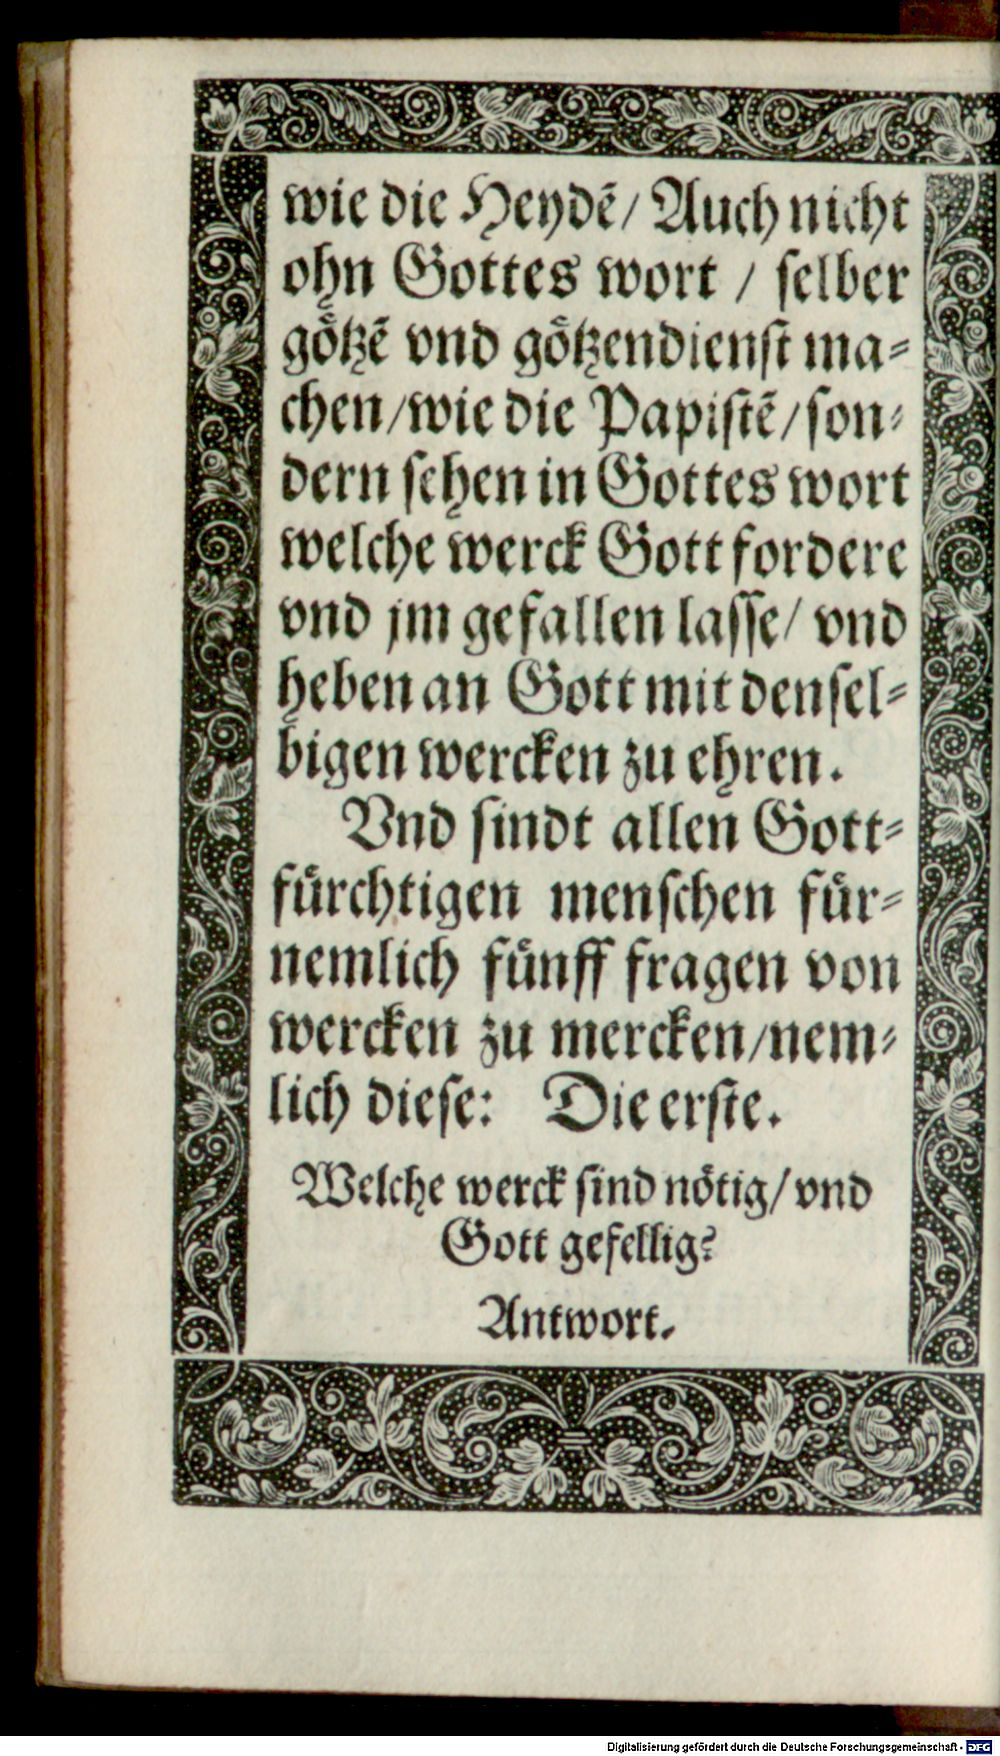 wie die Heydẽ/ Auch nicht
ohn Gottes wort / ſelber
goͤtzẽ vnd goͤtzendienſt ma⸗
chen/wie die Papiſtẽ/ſon⸗
dern ſehen in Gottes wort
welche werck Gott fordere
vnd jm gefallen laſſe/ vnd
heben an Gott mit denſel⸗
bigen wercken zu ehren.
Vnd ſindt allen Gott⸗
fuͤrchtigen menſchen fuͤr⸗
nemlich fuͤnff fragen von
wercken zu mercken/nem⸗
lich dieſe: Die erſte.
Welche werck ſind noͤtig/ vnd
Gott gefellig?
Antwort.
Digitalisierung gefördert durch die Deutsche Forschungsgemeinschaft - DFG